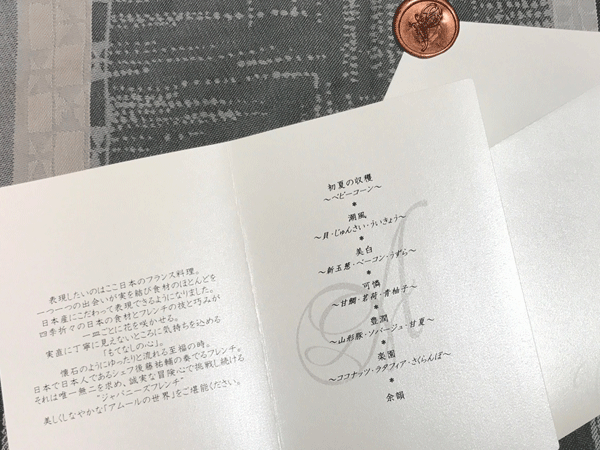 表現したいのはここ日本のフランス料理。
一つ一つの出会いが実を結び食材のほとんどを
日本産にこだわって表現できるようになりました。
四季折々の日本の食材とフレンチの技と巧みが
一皿ごとに花を咲かせる。
実直に丁寧に見えないところに気持ちを込める
「もてなしの心」。
懐石のようにゆったりと流れる至福の時。
日本で日本人であるシェフ後藤祐輔の奏でるフレンチ。
それは唯一無二を求め、誠実な冒険心で挑戦し続ける
"ジャパニーズフレンチ"
美しくしなやかな「アムールの世界」をご堪能ください。
初夏の収穫
～ベビーコーン～
潮風
～貝・じゅんさい・ういきょう～
美白
～新玉葱・ベーコン・うずら～
可憐
～甘鯛・茗荷・青柚子～
豊潤
～山形豚・ソバージュ・甘夏～
楽園
～ココナッツ・ラタフィア・さくらんぼ～
余韻
A